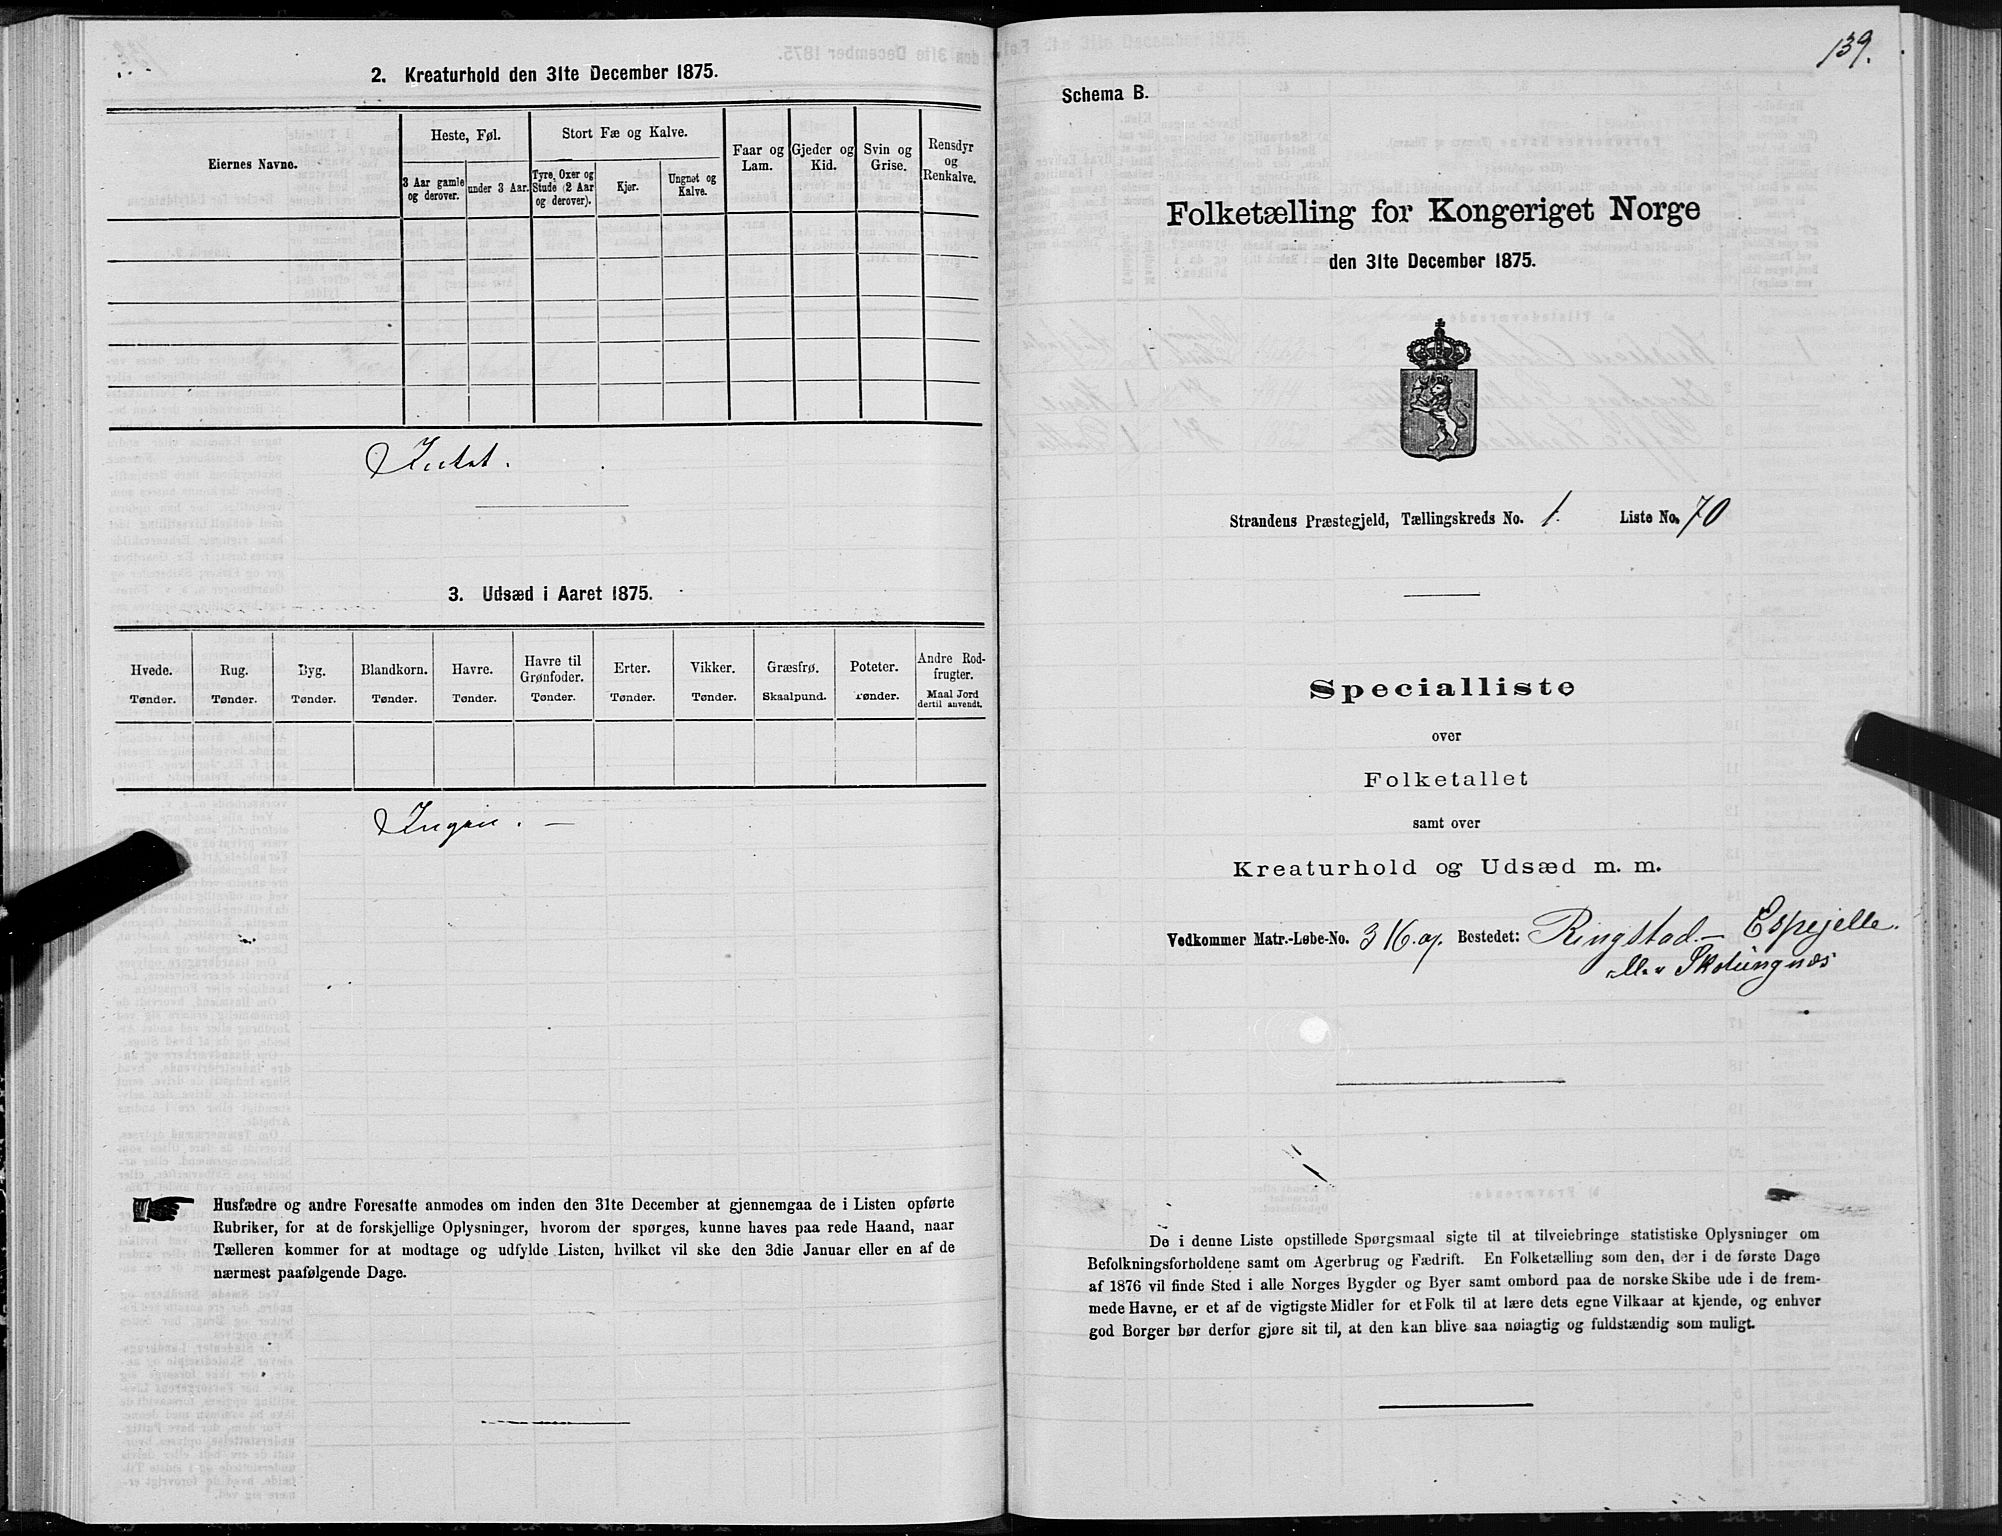 2. Kreaturhold den 31te December 1875.
Eiernes Navne.
Heste, Føl.
3 Aar gamle og derover.
under 3 Aar.
Stort Fæ og Kalve.
Tyre, Oxer og Stude (2 Aar og derover).
Kjør.
Ungnøt og Kalve.
Faar og Lam.
Gjeder og Kid.
Svin og Grise.
Rensdyr og Renkalve.
Intet.
3. Udsæd i Aaret 1875.
Hvede. Tønder.
Rug. Tønder.
Byg. Tønder.
Blandkorn. Tønder.
Havre. Tønder.
Havre til Grønfoder. Tønder.
Erter. Tønder.
Vikker. Tønder.
Græsfrø. Skaalpund.
Poteter. Tønder.
Andre Rodfrugter. Maal Jord dertil anvendt.
Ingen. —
Husfædre og andre Foresatte anmodes om inden den 31te December at gjennemgaa de i Listen opførte
Rubriker, for at de forskjellige Oplysninger, hvorom der spørges, kunne haves paa rede Haand, naar
Tælleren kommer for at modtage og udfylde Listen, hvilket vil ske den 3die Januar eller en af de
nærmest paafølgende Dage.
139.
Schema B.
Folketælling for Kongeriget Norge
den 31te December 1875.
Strandens Præstegjeld, Tællingskreds No. 1. Liste No. 70
Specialliste
over
Folketallet
samt over
Kreaturhold og Udsæd m. m.
Vedkommer Matr.-Løbe-No. 3 Bostedet: Ringstad — Espejelle.
De i denne Liste opstillede Spørgsmaal sigte til at tilveiebringe statistiske Oplysninger om
Befolkningsforholdene samt om Agerbrug og Fædrift. En Folketælling som den, der i de første Dage
af 1876 vil finde Sted i alle Norges Bygder og Byer samt ombord paa de norske Skibe ude i de frem-
mede Havne, er et af de vigtigste Midler for et Folk til at lære dets egne Vilkaar at kjende, og enhver
god Borger bør derfor gjøre sit til, at den kan blive saa nøiagtig og fuldstændig som muligt.